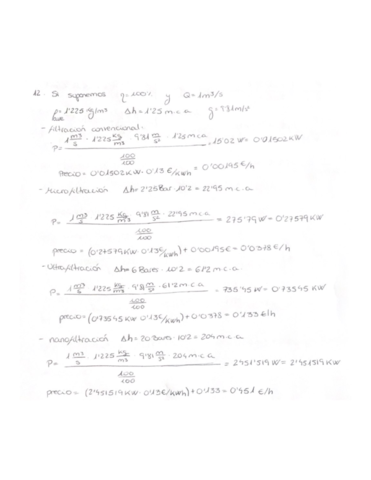 12. Si suponemos η=100% y Q=1m³/s
ρ=1'225 kg/m³ Δh=1'25 m.c.a. g=9'81m/s²
- Filtración convencional:
P= 1 m³/s · 1'225 kg/m³ · 9'81 m/s² · 1'25 m.c.a. / 100/100 = 15'02 W = 0'01502 KW
Precio = 0'01502 KW · 0'13 €/KWh = 0'00195 €/h
- Microfiltración Δh=2'25 Bar · 10'2 = 22'95 m.c.a.
P= 1 m³/s · 1'225 kg/m³ · 9'81 m/s² · 22'95 m.c.a. / 100/100 = 275'79 W = 0'27579 KW
precio = (0'27579 KW · 0'13€/KWh) + 0'00195€ = 0'0378 €/h
- Ultrafiltración Δh= 6 Bares · 10'2 = 61'2 m.c.a.
P= 1 m³/s · 1'225 kg/m³ · 9'81 m/s² · 61'2 m.c.a. / 100/100 = 735'45 W = 0'73545 KW
precio = (0'73545 KW · 0'13€/KWh) + 0'0378 = 0'133 €/h
- nanofiltración Δh = 20 Bares · 10'2 = 204 m.c.a.
P= 1 m³/s · 1'225 kg/m³ · 9'81 m/s² · 204 m.c.a. / 100/100 = 2451'519 W = 2'451519 KW
precio = (2'451519 KW · 0'13€/KWh) + 0'133 = 0'451 €/h